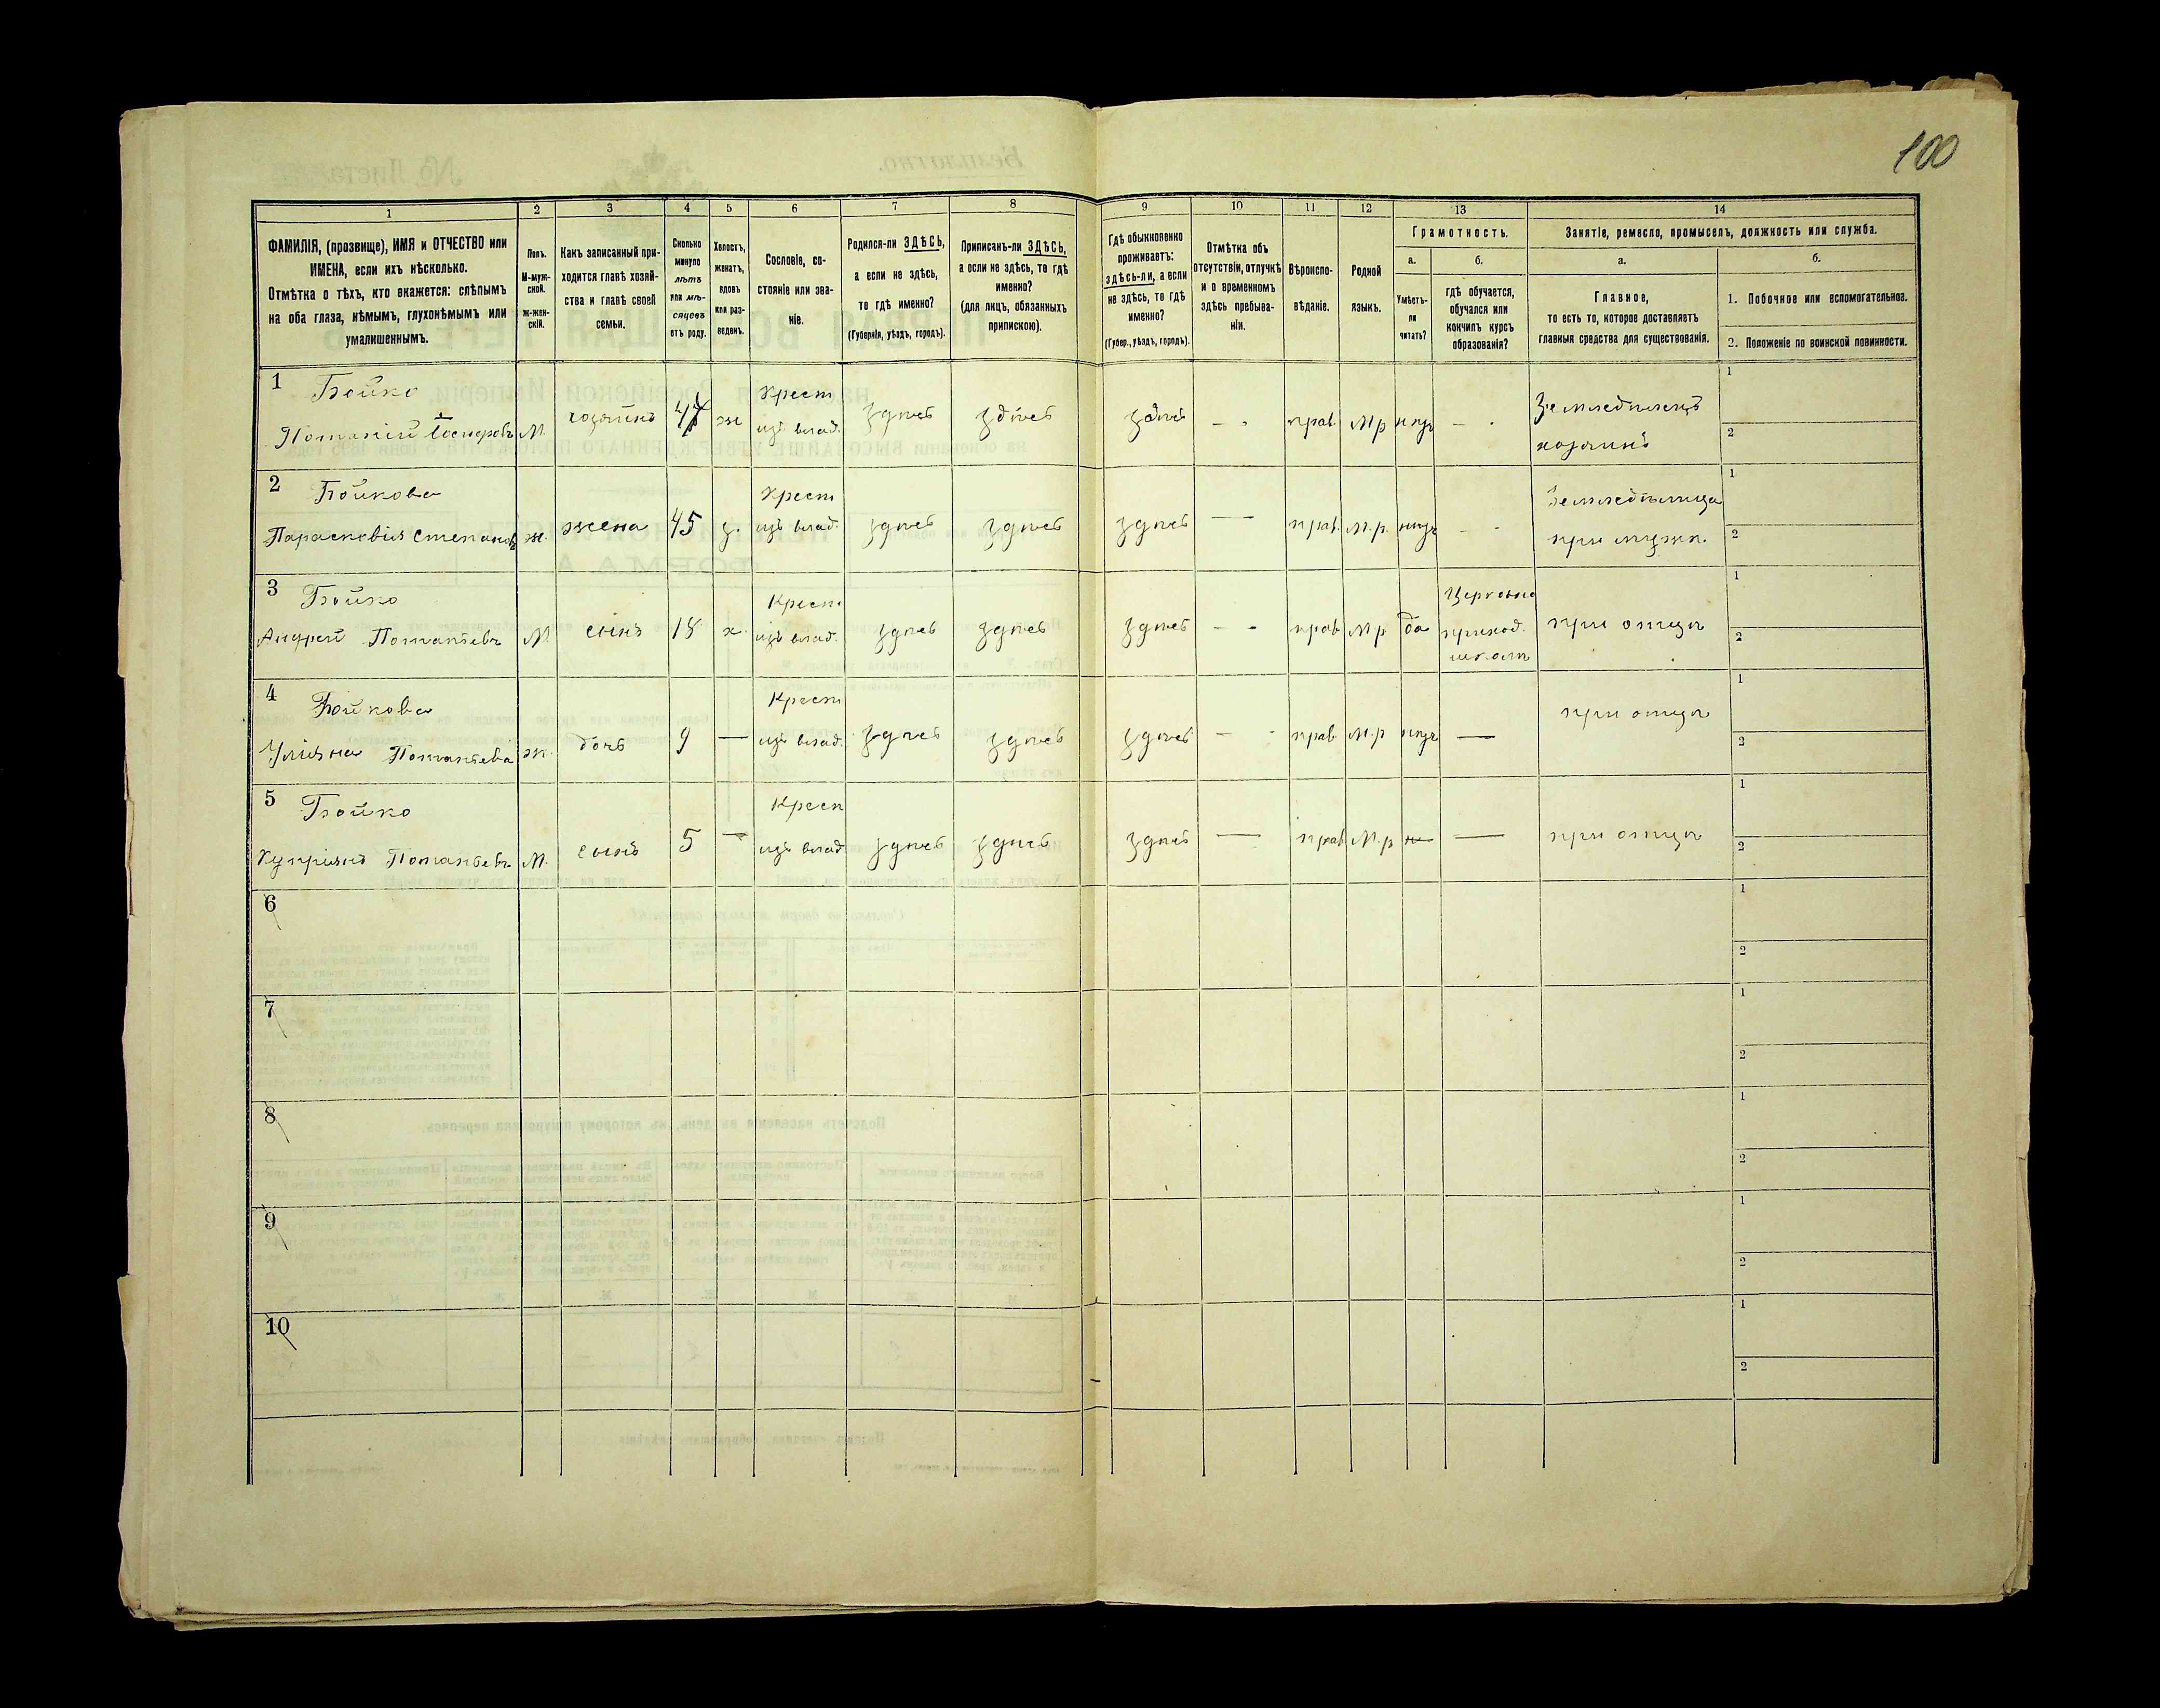 100
1 2 3 4 5 6 7 8 9 10 11 12 13 14
ФАМИЛІЯ, (прозвище), ИМЯ и ОТЧЕСТВО или
ИМЕНА, если ихъ нѣсколько.
Отмѣтка о тѣхъ, кто окажется: слѣпымъ
на оба глаза, нѣмымъ, глухонѣмымъ или
умалишеннымъ.
Полъ.
М-муж-
ской.
ж-жен-
скій.
Какъ записанный при-
ходится главѣ хозяй-
ства и главѣ своей
семьи.
Сколько
минуло
лѣтъ
или мѣ-
сяцевъ
отъ роду.
Холостъ,
женатъ,
вдовъ
или раз-
веденъ.
Сословіе, со-
стояніе или зва-
ніе.
Родился-ли ЗДѢСЬ,
а если не здѣсь,
то гдѣ именно?
(Губернія, уѣздъ, городъ).
Приписанъ-ли ЗДѢСЬ,
а если не здѣсь, то гдѣ
именно?
(для лицъ, обязанныхъ
припискою).
Гдѣ обыкновенно
проживаетъ:
здѣсь-ли, а если
не здѣсь, то гдѣ
именно?
(Губер., уѣздъ, городъ).
Отмѣтка объ
отсутствіи, отлучкѣ
и о временномъ
здѣсь пребыва-
ніи.
Вѣроиспо-
вѣданіе.
Родной
языкъ.
Грамотность.
а.
Умѣетъ-
ли
читать?
б.
гдѣ обучается,
обучался или
кончилъ курсъ
образованія?
Занятіе, ремесло, промыселъ, должность или служба.
а.
Главное,
то есть то, которое доставляетъ
главныя средства для существованія.
б.
1. Побочное или вспомогательное.
2. Положеніе по воинской повинности.
1 Бойко Крест Земледѣлецъ 1
Потапій Іосифовъ М. хозяинъ 47 ж изъ влад. здѣсь здѣсь здѣсь — прав. М.р нѣтъ — хозяинъ 2
2 Бойкова Крест Земледѣлица 1
Параскевія Степанов ж. жена 45 з. изъ влад. здѣсь здѣсь здѣсь — прав. М.р. нѣтъ — при мужѣ. 2
3 Бойко Крест Церковно 1
Андрей Потапьевъ М. сынъ 18 х. изъ влад. здѣсь здѣсь здѣсь — прав М.р да приход. при отцѣ 2
школѣ
4 Бойкова Крест при отцѣ 1
Уліяна Потапьева ж. дочь 9 — изъ влад. здѣсь здѣсь здѣсь — прав М.р нѣтъ — 2
5 Бойко Крест 1
Купріянъ Потапьевъ М. сынъ 5 — изъ влад здѣсь здѣсь здѣсь — прав М.р — при отцѣ 2
6 1
2
7 1
2
8 1
2
9 1
2
10 1
2